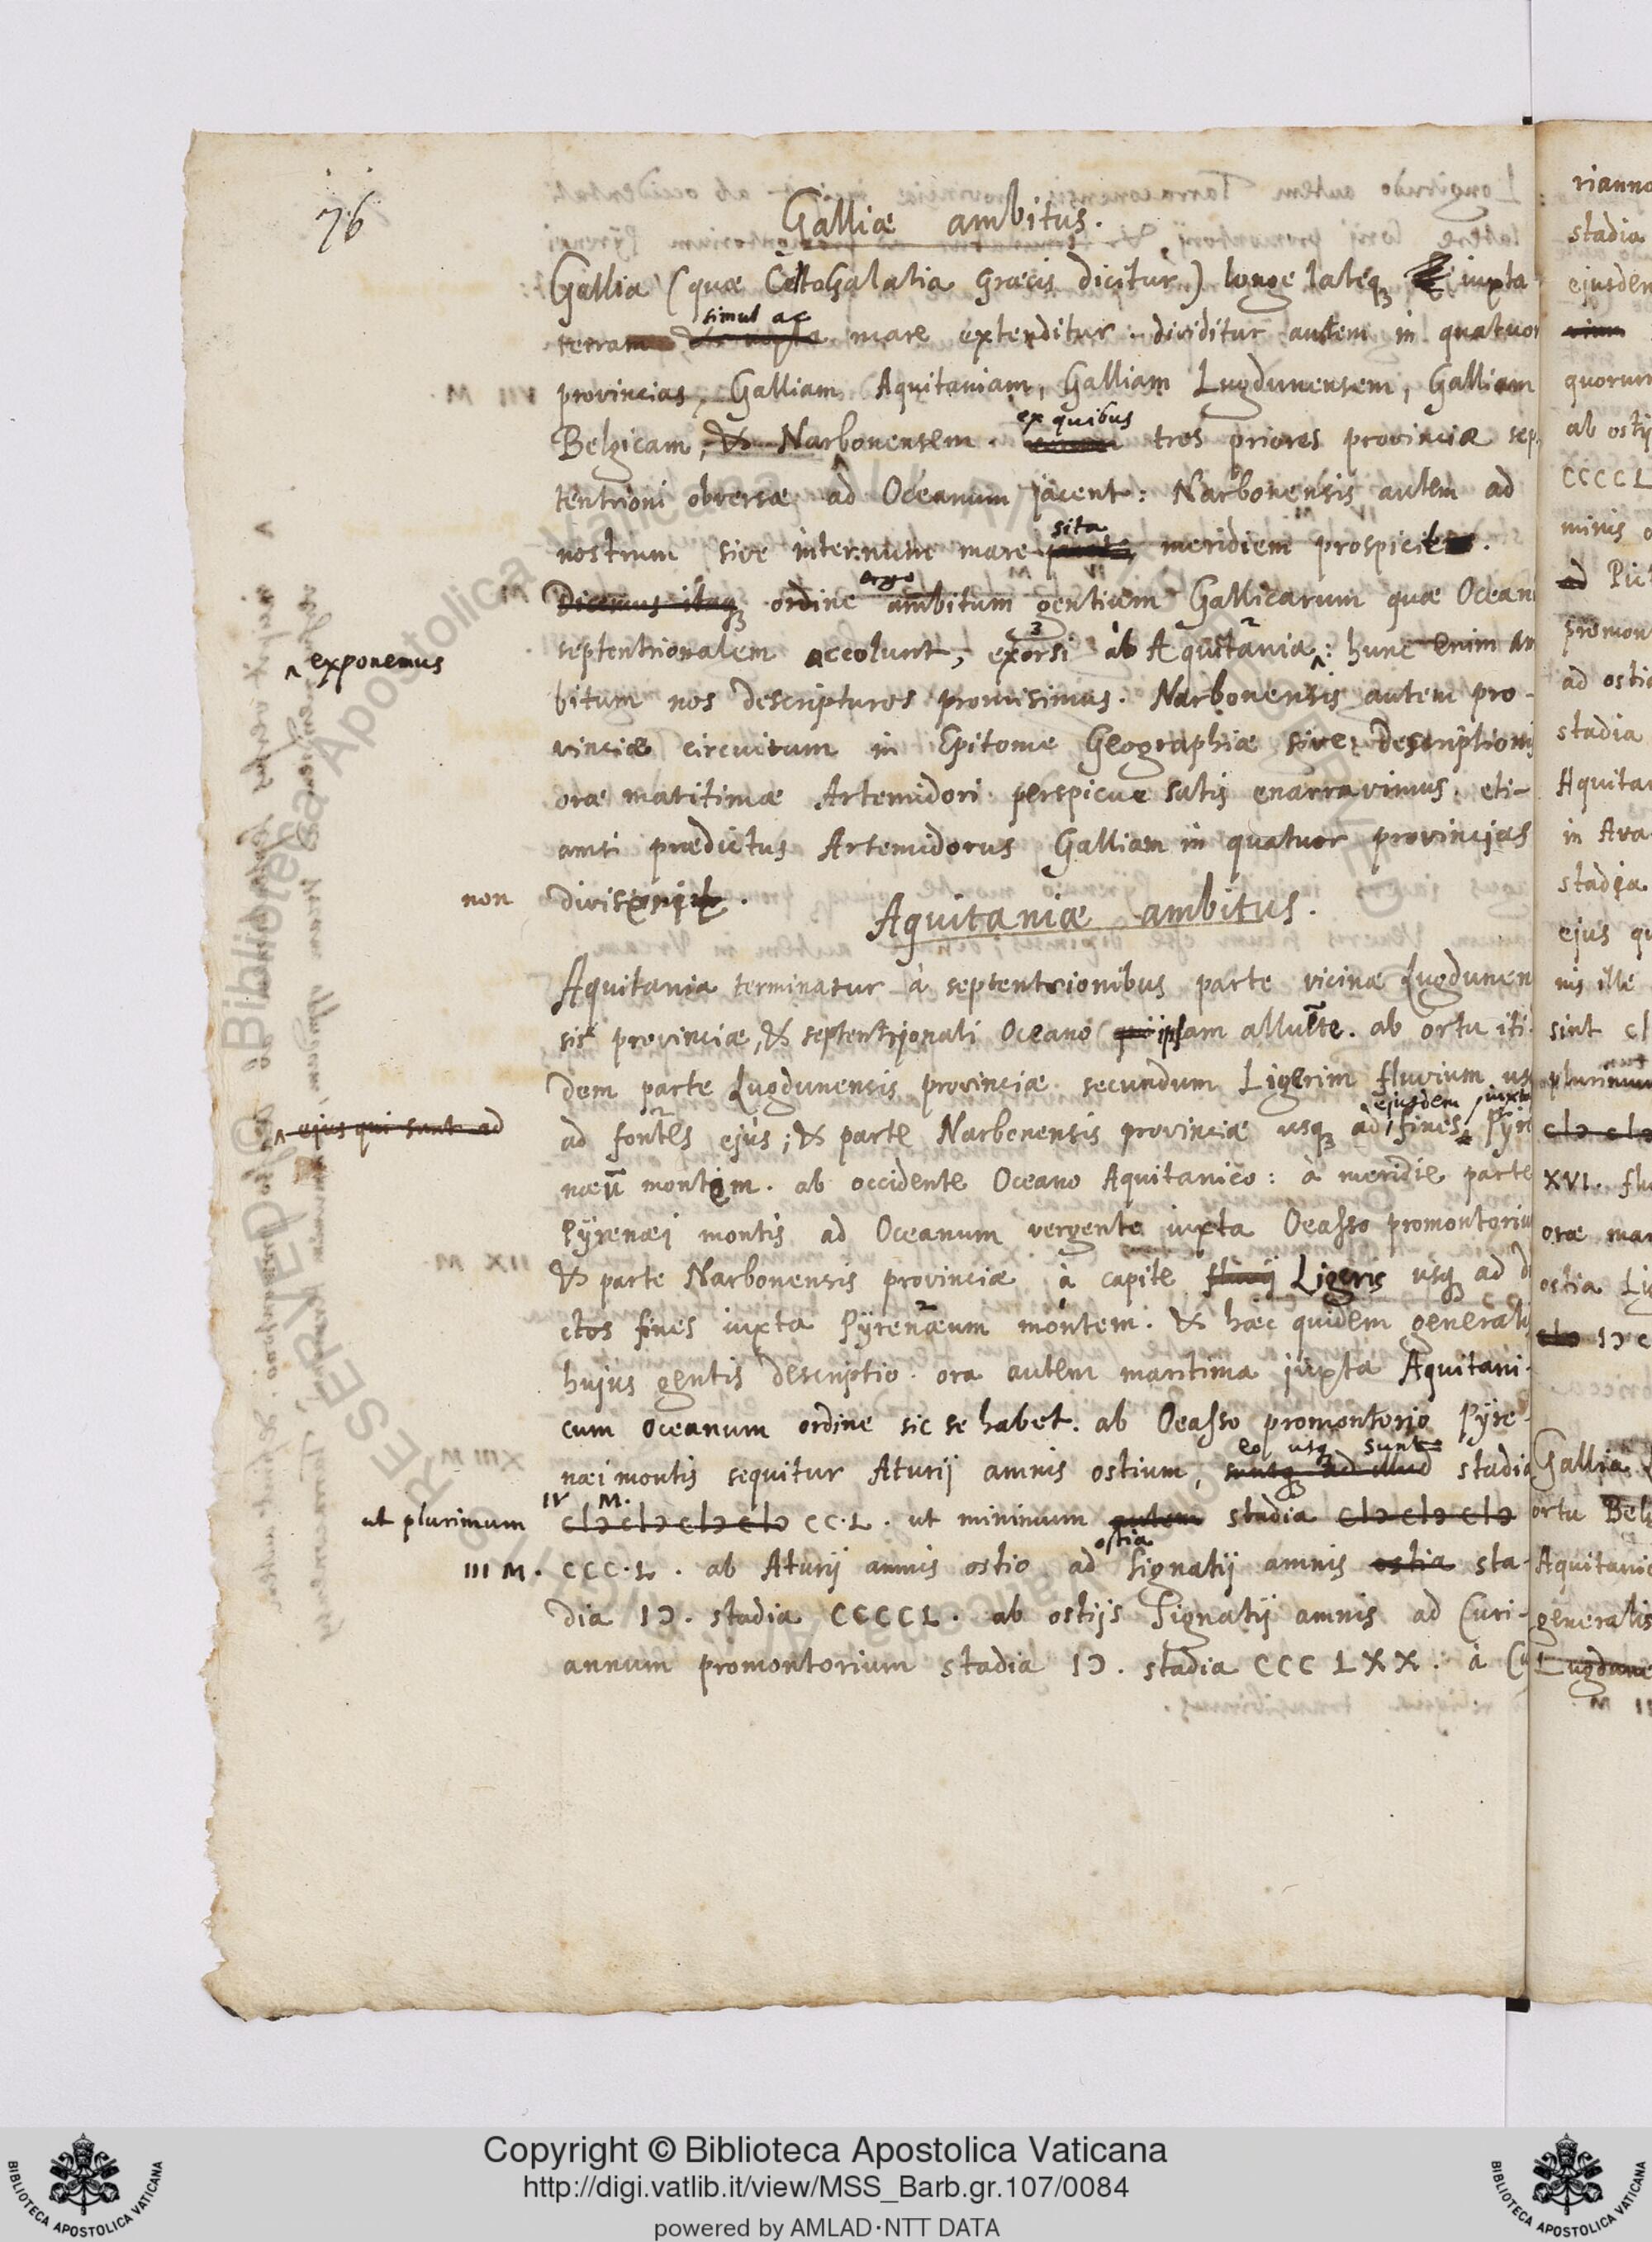 76
Galliæ ambitus.
Gallia (quæ Celtogalatia Græcis dicitur) longe lateq; iuxta
simul ac
terram & iuxta mare extenditur : dividitur autem in quatuor
provincias, Galliam Aquitaniam, Galliam Lugdunensem, Galliam
ex quibus
Belgicam, & Narbonensem. tres priores provinciæ sep
tentrioni obversæ ad Oceanum jacent : Narbonensis autem ad
sita
nostrum sive internum mare meridiem prospiciens.
ergo
Dicemus itaq; ordine ambitum gentium Gallicarum quæ Ocean
septentrionalem accolunt, exorsi ab Aquitania : hunc enim am
^ exponemus
bitum nos descripturos promisimus. Narbonensis autem pro-
vinciæ circuitum in Epitome Geographiæ sive Descriptioni
oræ maritimæ Artemidori perspicue satis enarravimus. eti-
amsi prædictus Artemidorus Galliam in quatuor provincias
non
Aquitaniæ ambitus.
Aquitania terminatur à septentrionibus parte vicinæ Lugdunen
sis provinciæ, & septentrionali Oceano ipsam alluēte. ab ortu iti-
dem parte Lugdunensis provinciæ secundum Ligerim fluvium us
ejusdem / iuxta
^ ejus qui sunt ad
ad fontes ejus ; & parte Narbonensis provinciæ usq; ad fines Pyre
næū montem. ab occidente Oceano Aquitanico : à meridie parte
Pyrenæi montis ad Oceanum vergente iuxta Oeasso promontoriu
& parte Narbonensis provinciæ à capite fluvij Ligeris usq; ad di
ctos fines iuxta Pyrenæum montem. & hæc quidem generalis
hujus gentis descriptio. ora autem maritima juxta Aquitani-
cum Oceanum ordine sic se habet. ab Oeasso promontorio Pyre-
eo usq; sunt
næi montis sequitur Aturij amnis ostium, suntq; ad illud stadia
IV M.
ut plurimum
cIɔ cIɔ cIɔ cIɔ CC.L. ut minimum autem stadia cIɔ cIɔ cIɔ
ostia
III M. CCC.L. ab Aturij amnis ostio ad Signatij amnis ostia sta-
dia IƆ. stadia CCCCL. ab ostijs Signatij amnis ad Curi-
annum promontorium stadia IƆ. stadia CCC LXX. à Cu
rianno
stadia
ejusdem
quorum
ab ostij
CCCCL
minis o
ad Pict
promon
ad ostia
stadia
Aquitan
in Ara
stadia
ejus qu
nis ille
sint cI
plurimum
cIɔ cIɔ
XVI. flu
oræ mar
ostia Li
cIɔ IƆ C
Gallia
ortu Belg
Aquitanic
generalis
Lugdune
Copyright © Biblioteca Apostolica Vaticana
http://digi.vatlib.it/view/MSS_Barb.gr.107/0084
powered by AMLAD·NTT DATA
BIBLIOTECA APOSTOLICA VATICANA
BIBLIOTECA APOSTOLICA VATICANA